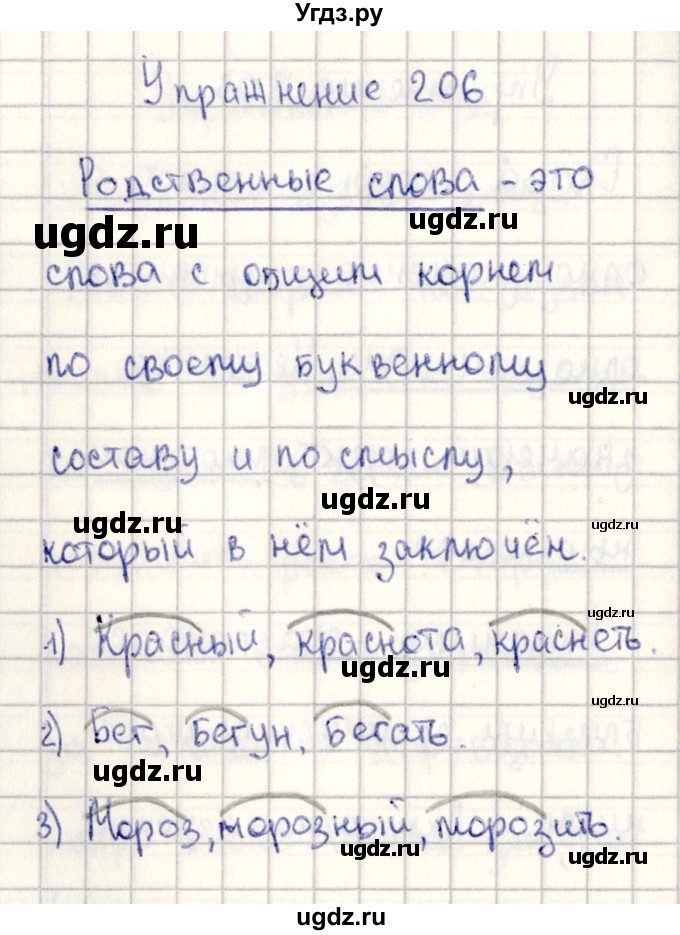 Угдз.ру
Упражнение 206
Родственные слова - это
ugdz.ru
ugdz.ru
слова с общим корнем
по своему буквенному
ugdz.ru
составу и по смыслу,
ugdz.ru
ugdz.ru
ugdz.ru
который в нём заключён.
ugdz.ru
1) Красный, краснота, краснеть.
ugdz.ru
ugdz.ru
2) Бег, бегун, бегать.
ugdz.ru
3) Мороз, морозный, морозить.
ugdz.ru
ugdz.ru
ugdz.ru